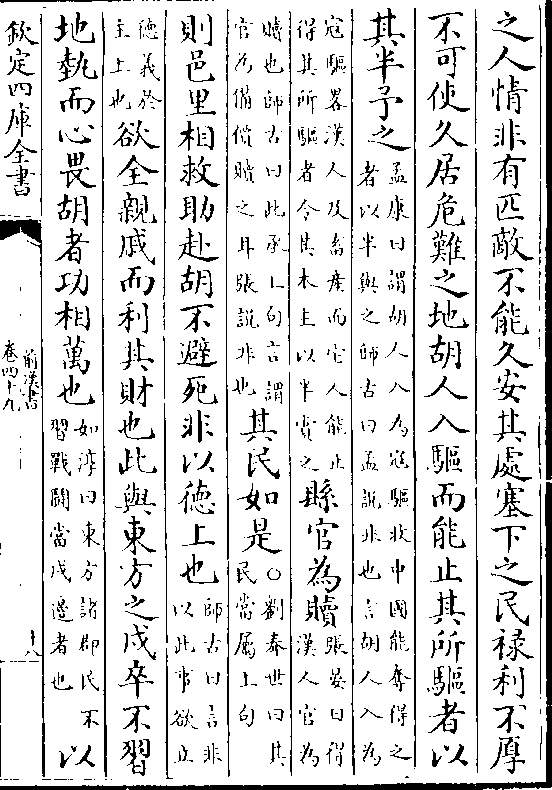 之人情非有匹敵不能久安其處塞下之民祿利不厚
不可使久居危難之地胡人入驅而能止其所驅者以
其半予之孟康曰謂胡人入為冦驅收中國能奪得之者以半與之師古曰孟說非也言胡人入為
冦驅畧漢人及畜產而它人能止得其所驅者令其本主以半賞之縣官為贖張晏曰得漢人官為
贖也師古曰此承上句言謂官為備價贖之耳張說非也其民如是○劉奉世曰其民當屬上句
則邑里相救助赴胡不避死非以德上也師古曰言非以此事欲立
德義於主上也欲全親戚而利其財也此與東方之戍卒不習
地埶而心畏胡者功相萬也如淳曰東方諸郡民不習戰鬬當戍邊者也以
欽定四庫全書
前漢書
卷四十九
十八